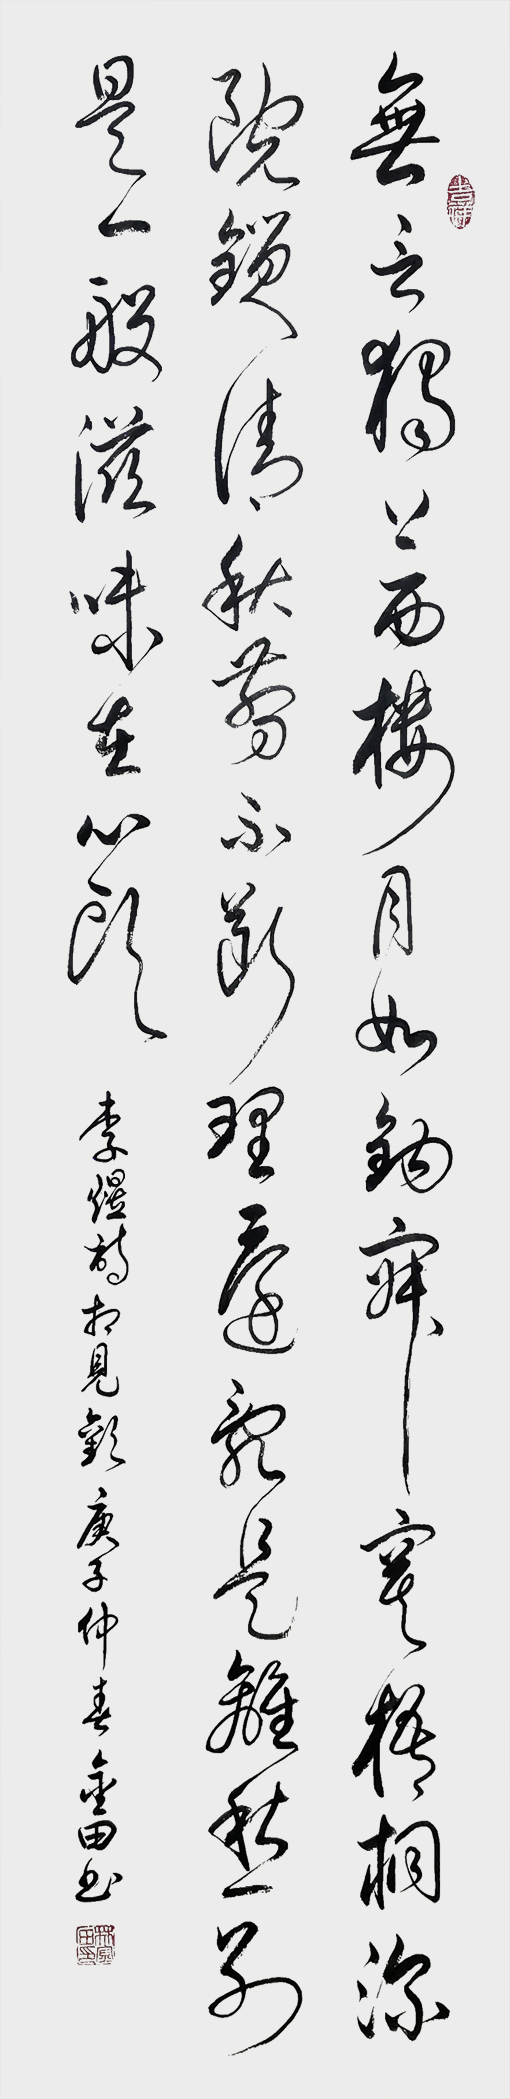 無言獨上西樓月如鈎寂寞梧桐深
院鎖清秋剪不斷理還亂是離愁別
是一般滋味在心頭
李煜詩相見歡庚子仲春金田書